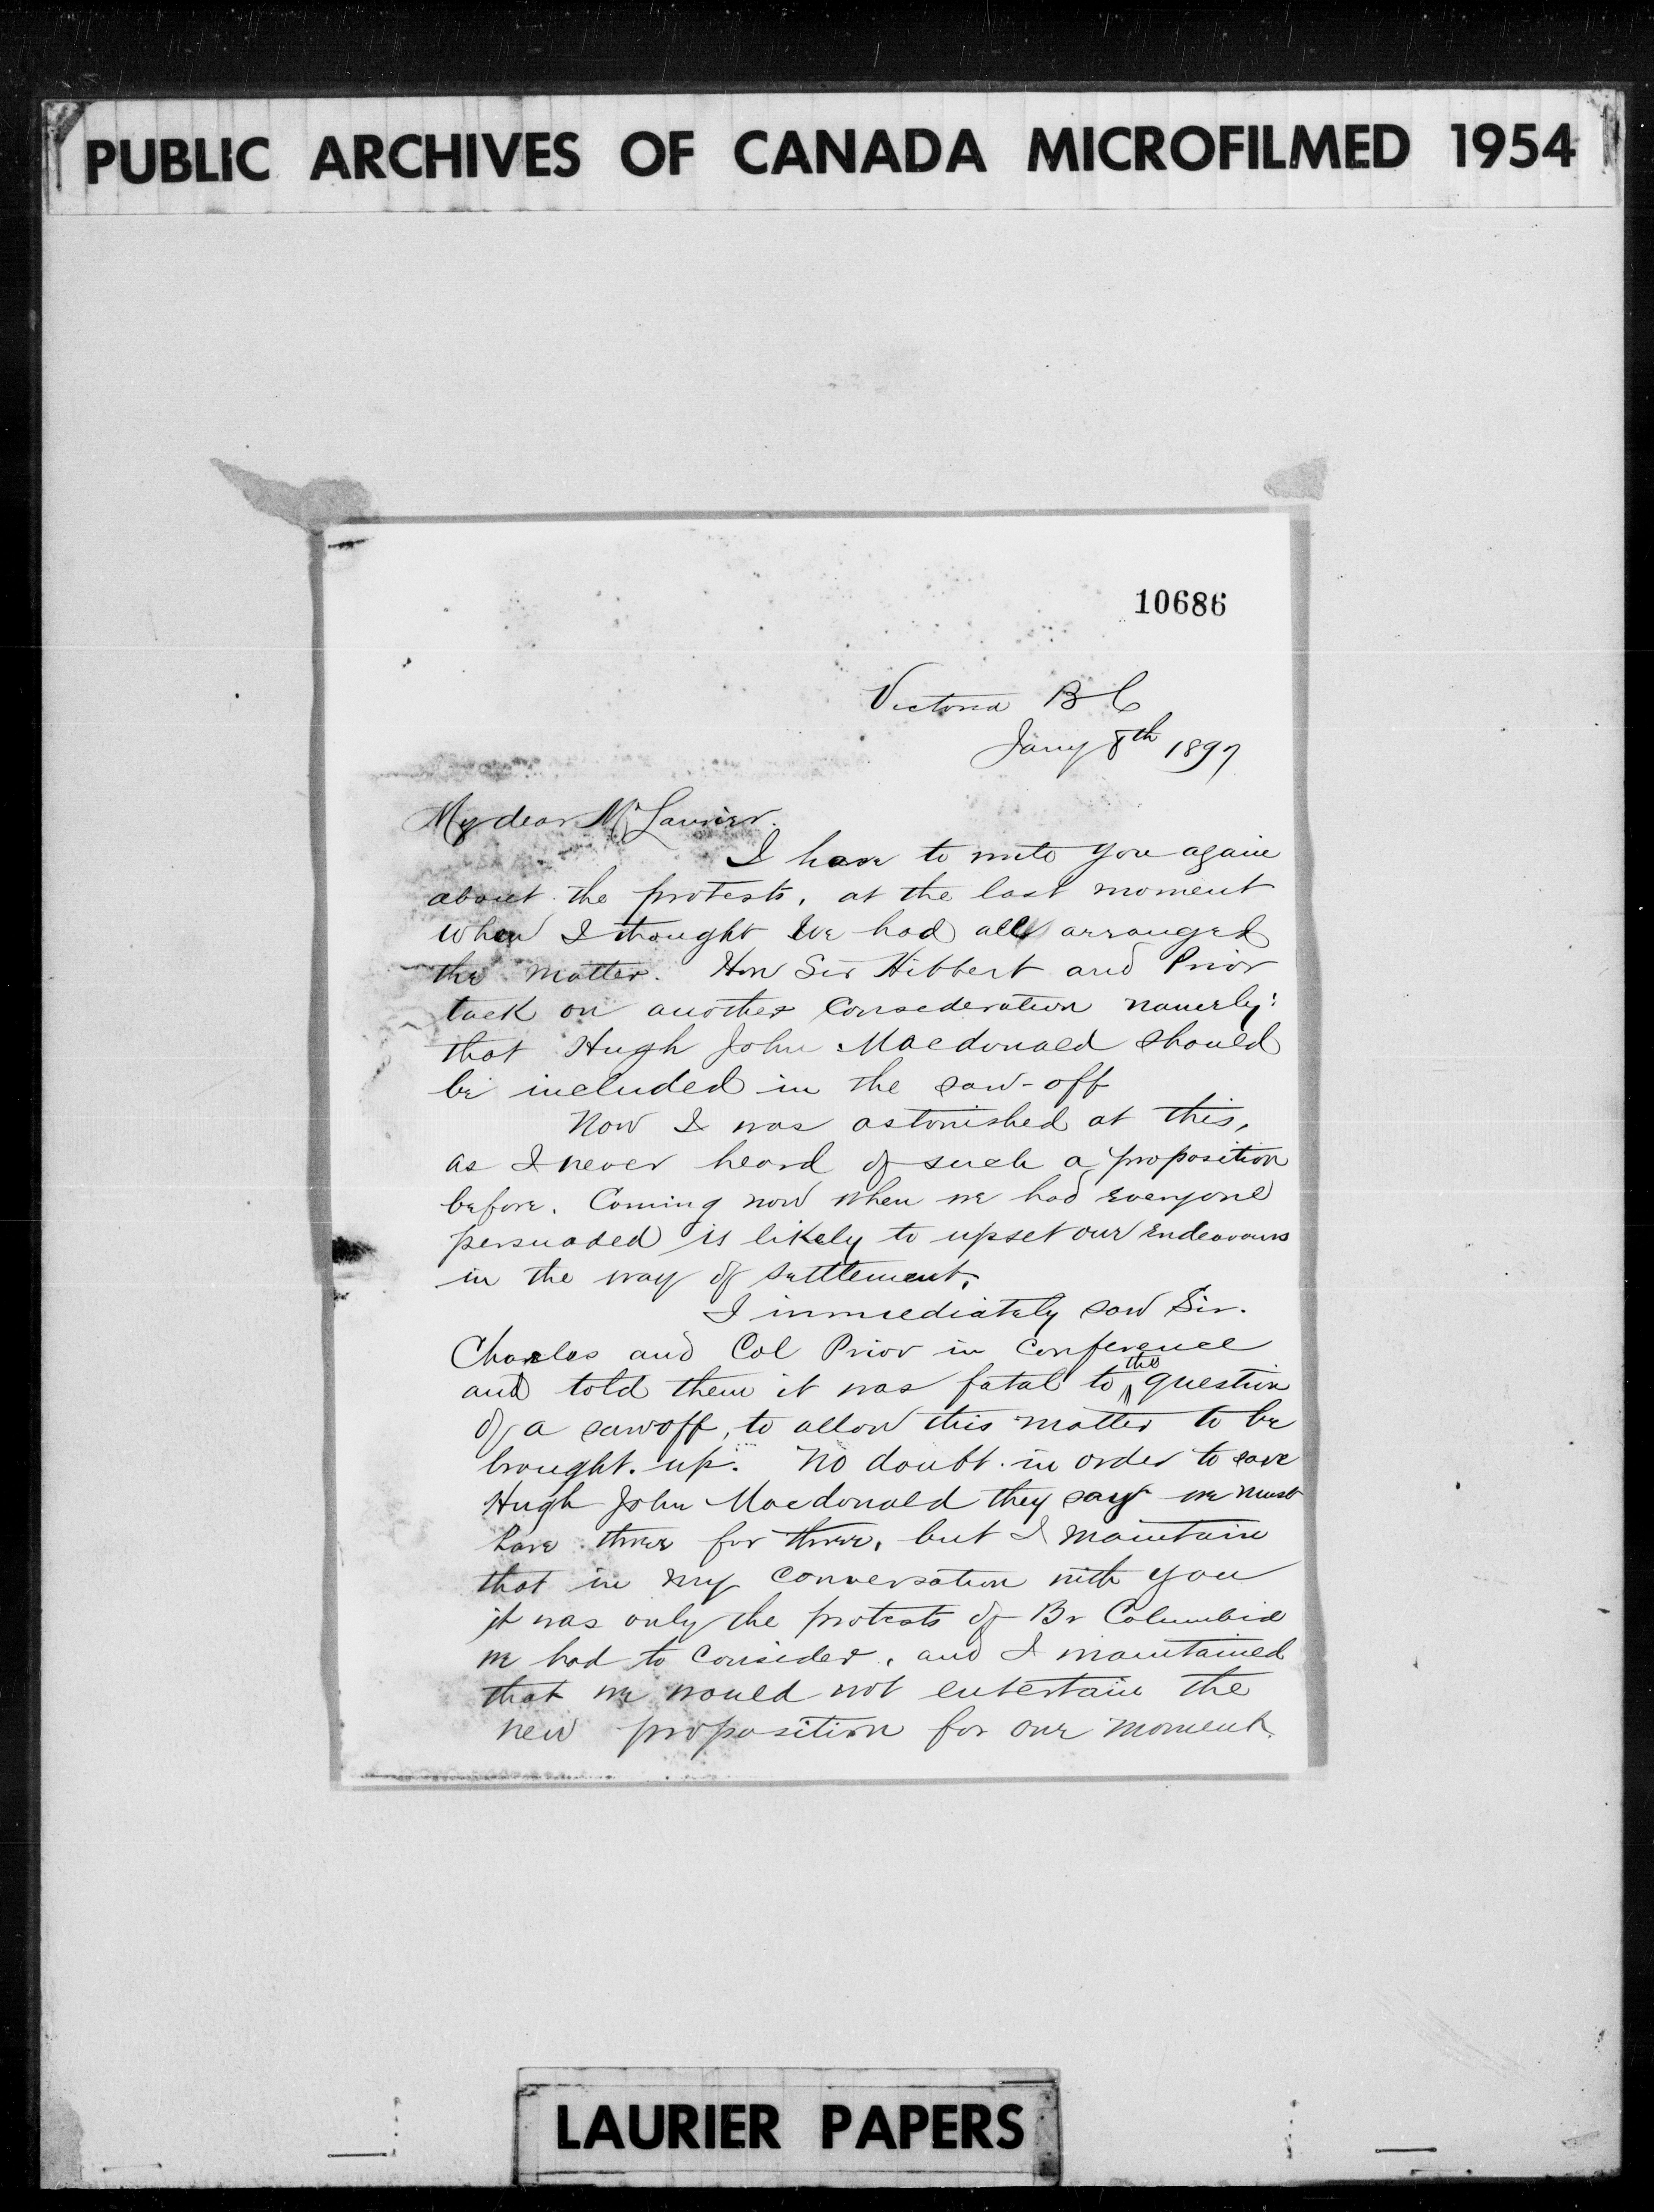 PUBLIC ARCHIVES OF CANADA MICROFILMED 1954
10686
Victoria B C
Jany 8th 1897
My dear Mr Laurier.
I have to write you again
about the protests, at the last moment
when I thought we had all arranged
the matter. Hon Sir Hibbert and Prior
tack on another consideration namerly:
that Hugh John Macdonald should
be included in the saw-off
Now I was astonished at this,
as I never heard of such a proposition
before. Coming now when we had everyone
persuaded is likely to upset our endeavours
in the way of settlement.
I immediately saw Sir.
Charles and Col Prior in conference
and told them it was fatal to the question
of a sawoff, to allow this matter to be
brought up. No doubt in order to save
Hugh John Macdonald they say we must
have three for three, but I maintain
that in my conversation with you
it was only the protests of Br Columbia
we had to consider, and I maintained
that we would not entertain the
new proposition for one moment.
LAURIER PAPERS